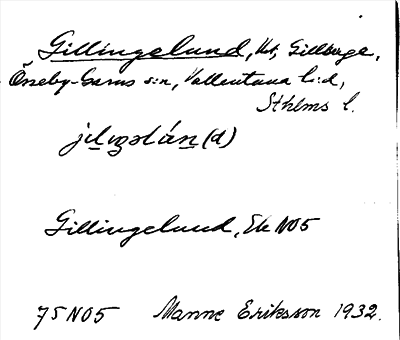 Gillingelund, lht, Gillberge,
Össeby-Garns s:n, Vallentuna h:d,
Sthlms l.
Gillingelund, Ek NO5
75 NO5 Manne Eriksson 1932.